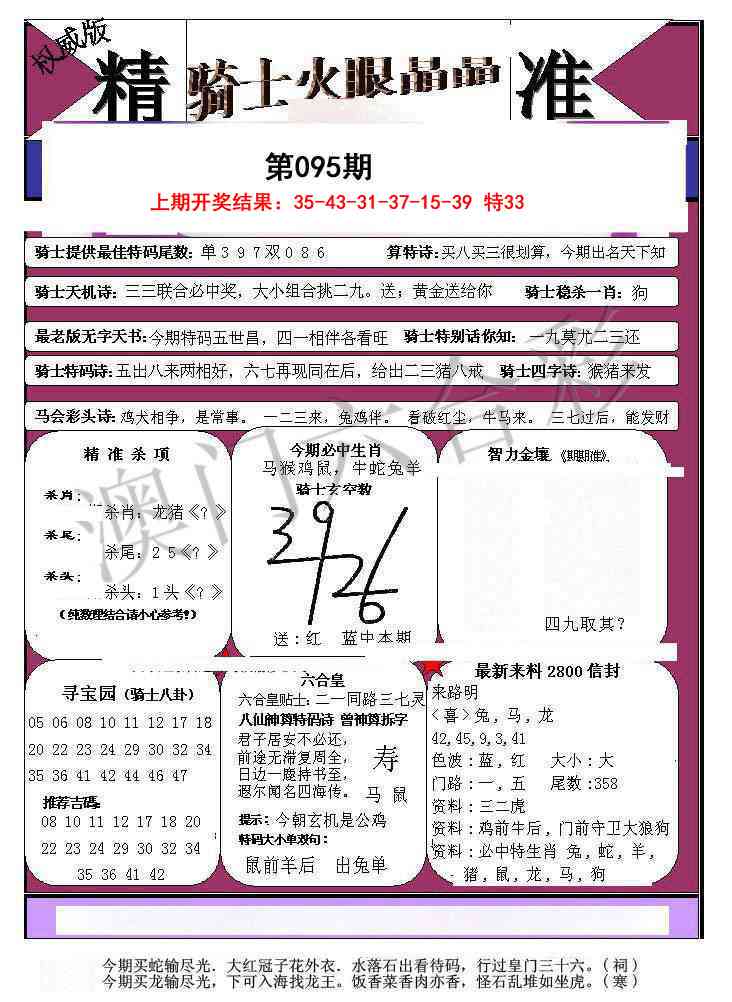 权威版
精 骑士火眼晶晶 准
第095期
上期开奖结果：35-43-31-37-15-39 特33
骑士提供最佳特码尾数：单３９７双０８６ 算特诗：买八买三很划算，今期出名天下知
骑士天机诗：三三联合必中奖，大小组合挑二九。送；黄金送给你 骑士稳杀一肖：狗
最老版无字天书：今期特码五世昌，四一相伴各看旺 骑士特别话你知： 一九莫尤二三还
骑士特码诗：五出八来两相好，六七再现同在后，给出二三猪八戒 骑士四字诗：猴猪来发
马会彩头诗：鸡犬相争，是常事。 一二三来，兔鸡伴。 看破红尘，牛马来。 三七过后，能发财
精 准 杀 项
杀肖：
杀肖：龙猪《？》
杀尾：
杀尾：２５《？》
杀头：
杀头：１头《？》
（纯数理结合请小心参考！）
今期必中生肖
马猴鸡鼠，牛蛇兔羊
骑士玄空数
39
26
送：红 蓝中本期
智力金壤
四九取其？
寻宝园（骑士八卦）
05 06 08 10 11 12 17 18
20 22 23 24 29 30 32 34
35 36 41 42 44 46 47
推荐吉码：
08 10 11 12 17 18 20
22 23 24 29 30 32 34
35 36 41 42
六合皇
六合皇贴士：二一同路三七灵
八仙神算特码诗 曾神算拆字
君子居安不必还，
前途无滞复周全，
日边一麾持书至，
遐尔闻名四海传。
寿
马 鼠
提示：今朝玄机是公鸡
特码大小单双句：
鼠前羊后 出兔单
最新来料 2800 信封
来路明
＜喜＞兔，马，龙
42,45,9,3,41
色波：蓝，红 大小：大
门路：一，五 尾数：358
资料：三二虎
资料：鸡前牛后，门前守卫大狼狗
资料：必中特生肖 兔，蛇，羊，
猪，鼠，龙，马，狗
澳门六合彩
今期买蛇输尽光．大红冠子花外衣．水落石出看待码，行过皇门三十六。（祠）
今期买龙输尽光，下可入海找龙王。饭香菜香肉亦香，怪石乱堆如坐虎。（寒）